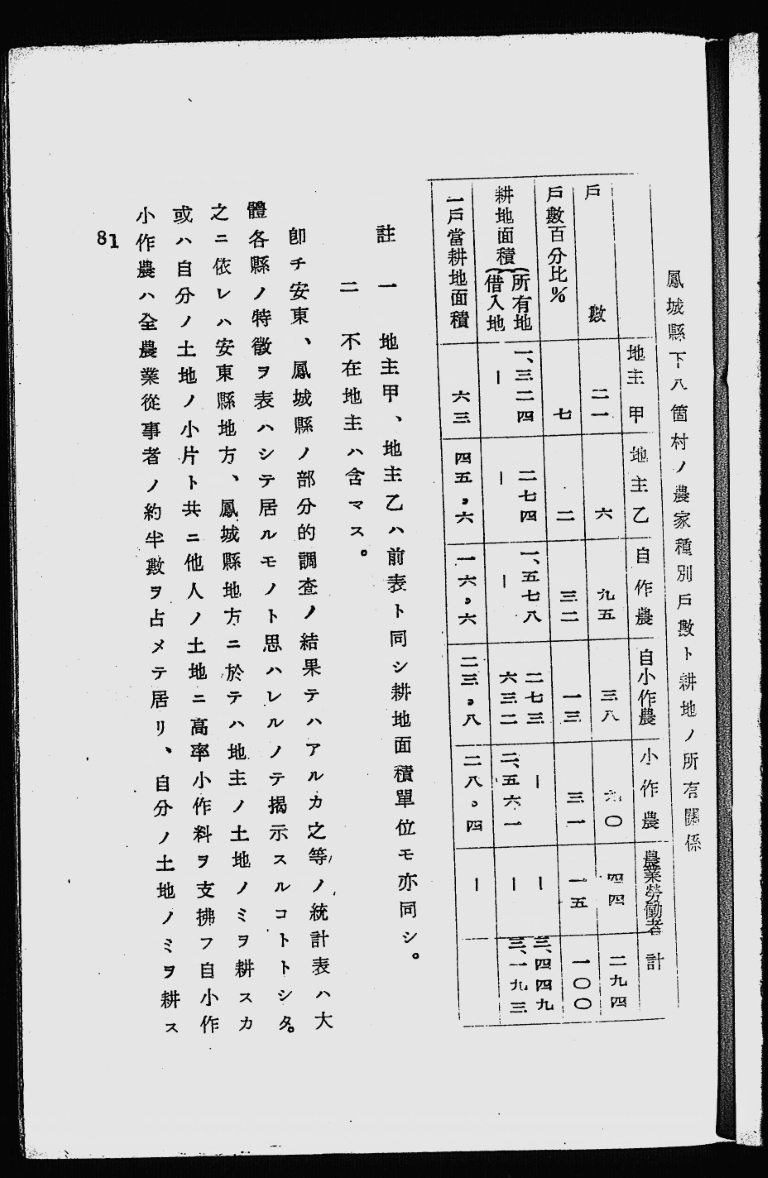 鳳城縣下八箇村ノ農家種別戶數ト耕地ノ所有關係
地主甲 地主乙 自作農 自小作農 小作農 農業勞働者 計
戶數 二一 六 九五 三八 九〇 四四 二九四
戶數百分比% 七 二 三二 一三 三一 一五 一〇〇
耕地面積{所有地 一、三二四 二七四 一、五七八 二七三 ー ー 三、四四九
借入地 ー ー ー 六三二 二、五六一 ー 三、一九三
一戶當耕地面積 六三 四五,六 一六,六 二三,八 二八,四 ー
註 一 地主甲、地主乙ハ前表ト同シ耕地面積單位モ亦同シ。
二 不在地主ハ含マス。
卽チ安東、鳳城縣ノ部分的調查ノ結果テハアルカ之等ノ統計表ハ大
體各縣ノ特徵ヲ表ハシテ居ルモノト思ハレルノテ揭示スルコトトシタ。
之ニ依レハ安東縣地方、鳳城縣地方ニ於テハ地主ノ土地ノミヲ耕スカ
或ハ自分ノ土地ノ小片ト共ニ他人ノ土地ニ高率小作料ヲ支拂フ自小作
小作農ハ全農業從事者ノ約半數ヲ占メテ居リ、自分ノ土地ノミヲ耕ス
81